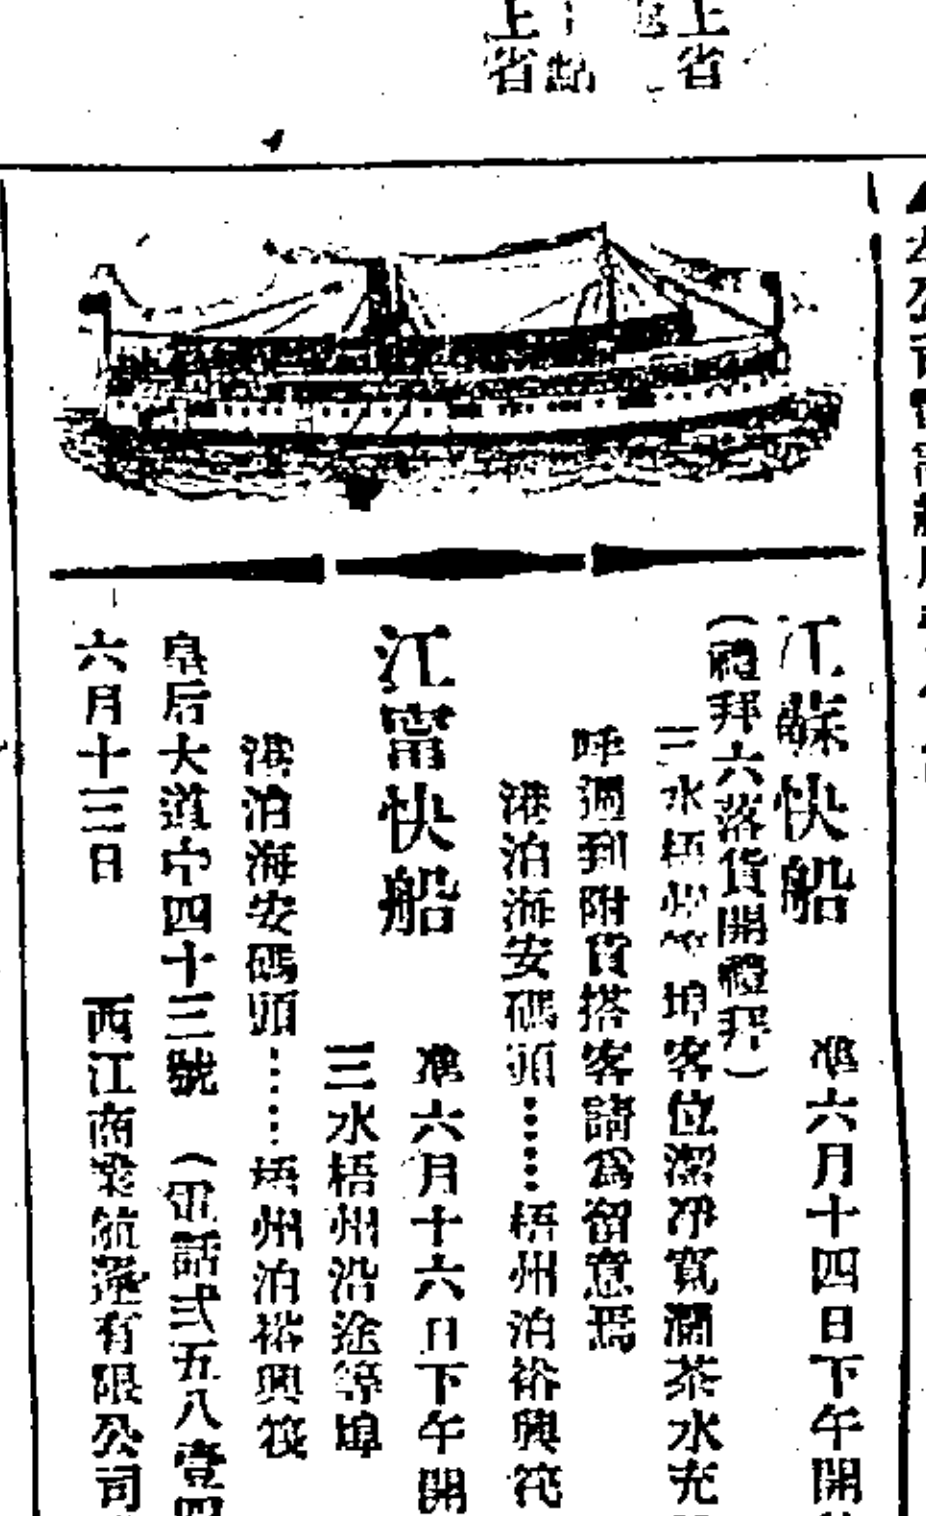 上省
上省
江蘇快船
(禮拜六落貨開禮拜)
准六月十四日下午開
三水梧州等埠客位潔淨寬濶茶水充
呼週到附貨搭客請為留意焉
港泊海安碼頭……梧州泊裕興筏
江甯快船
准六月十六日下午開
三水梧州沿途等埠
港泊海安碼頭……梧州泊裕興筏
皇后大道中四十三號 (電話弍五八壹四
六月十三日 西江商業航運有限公司